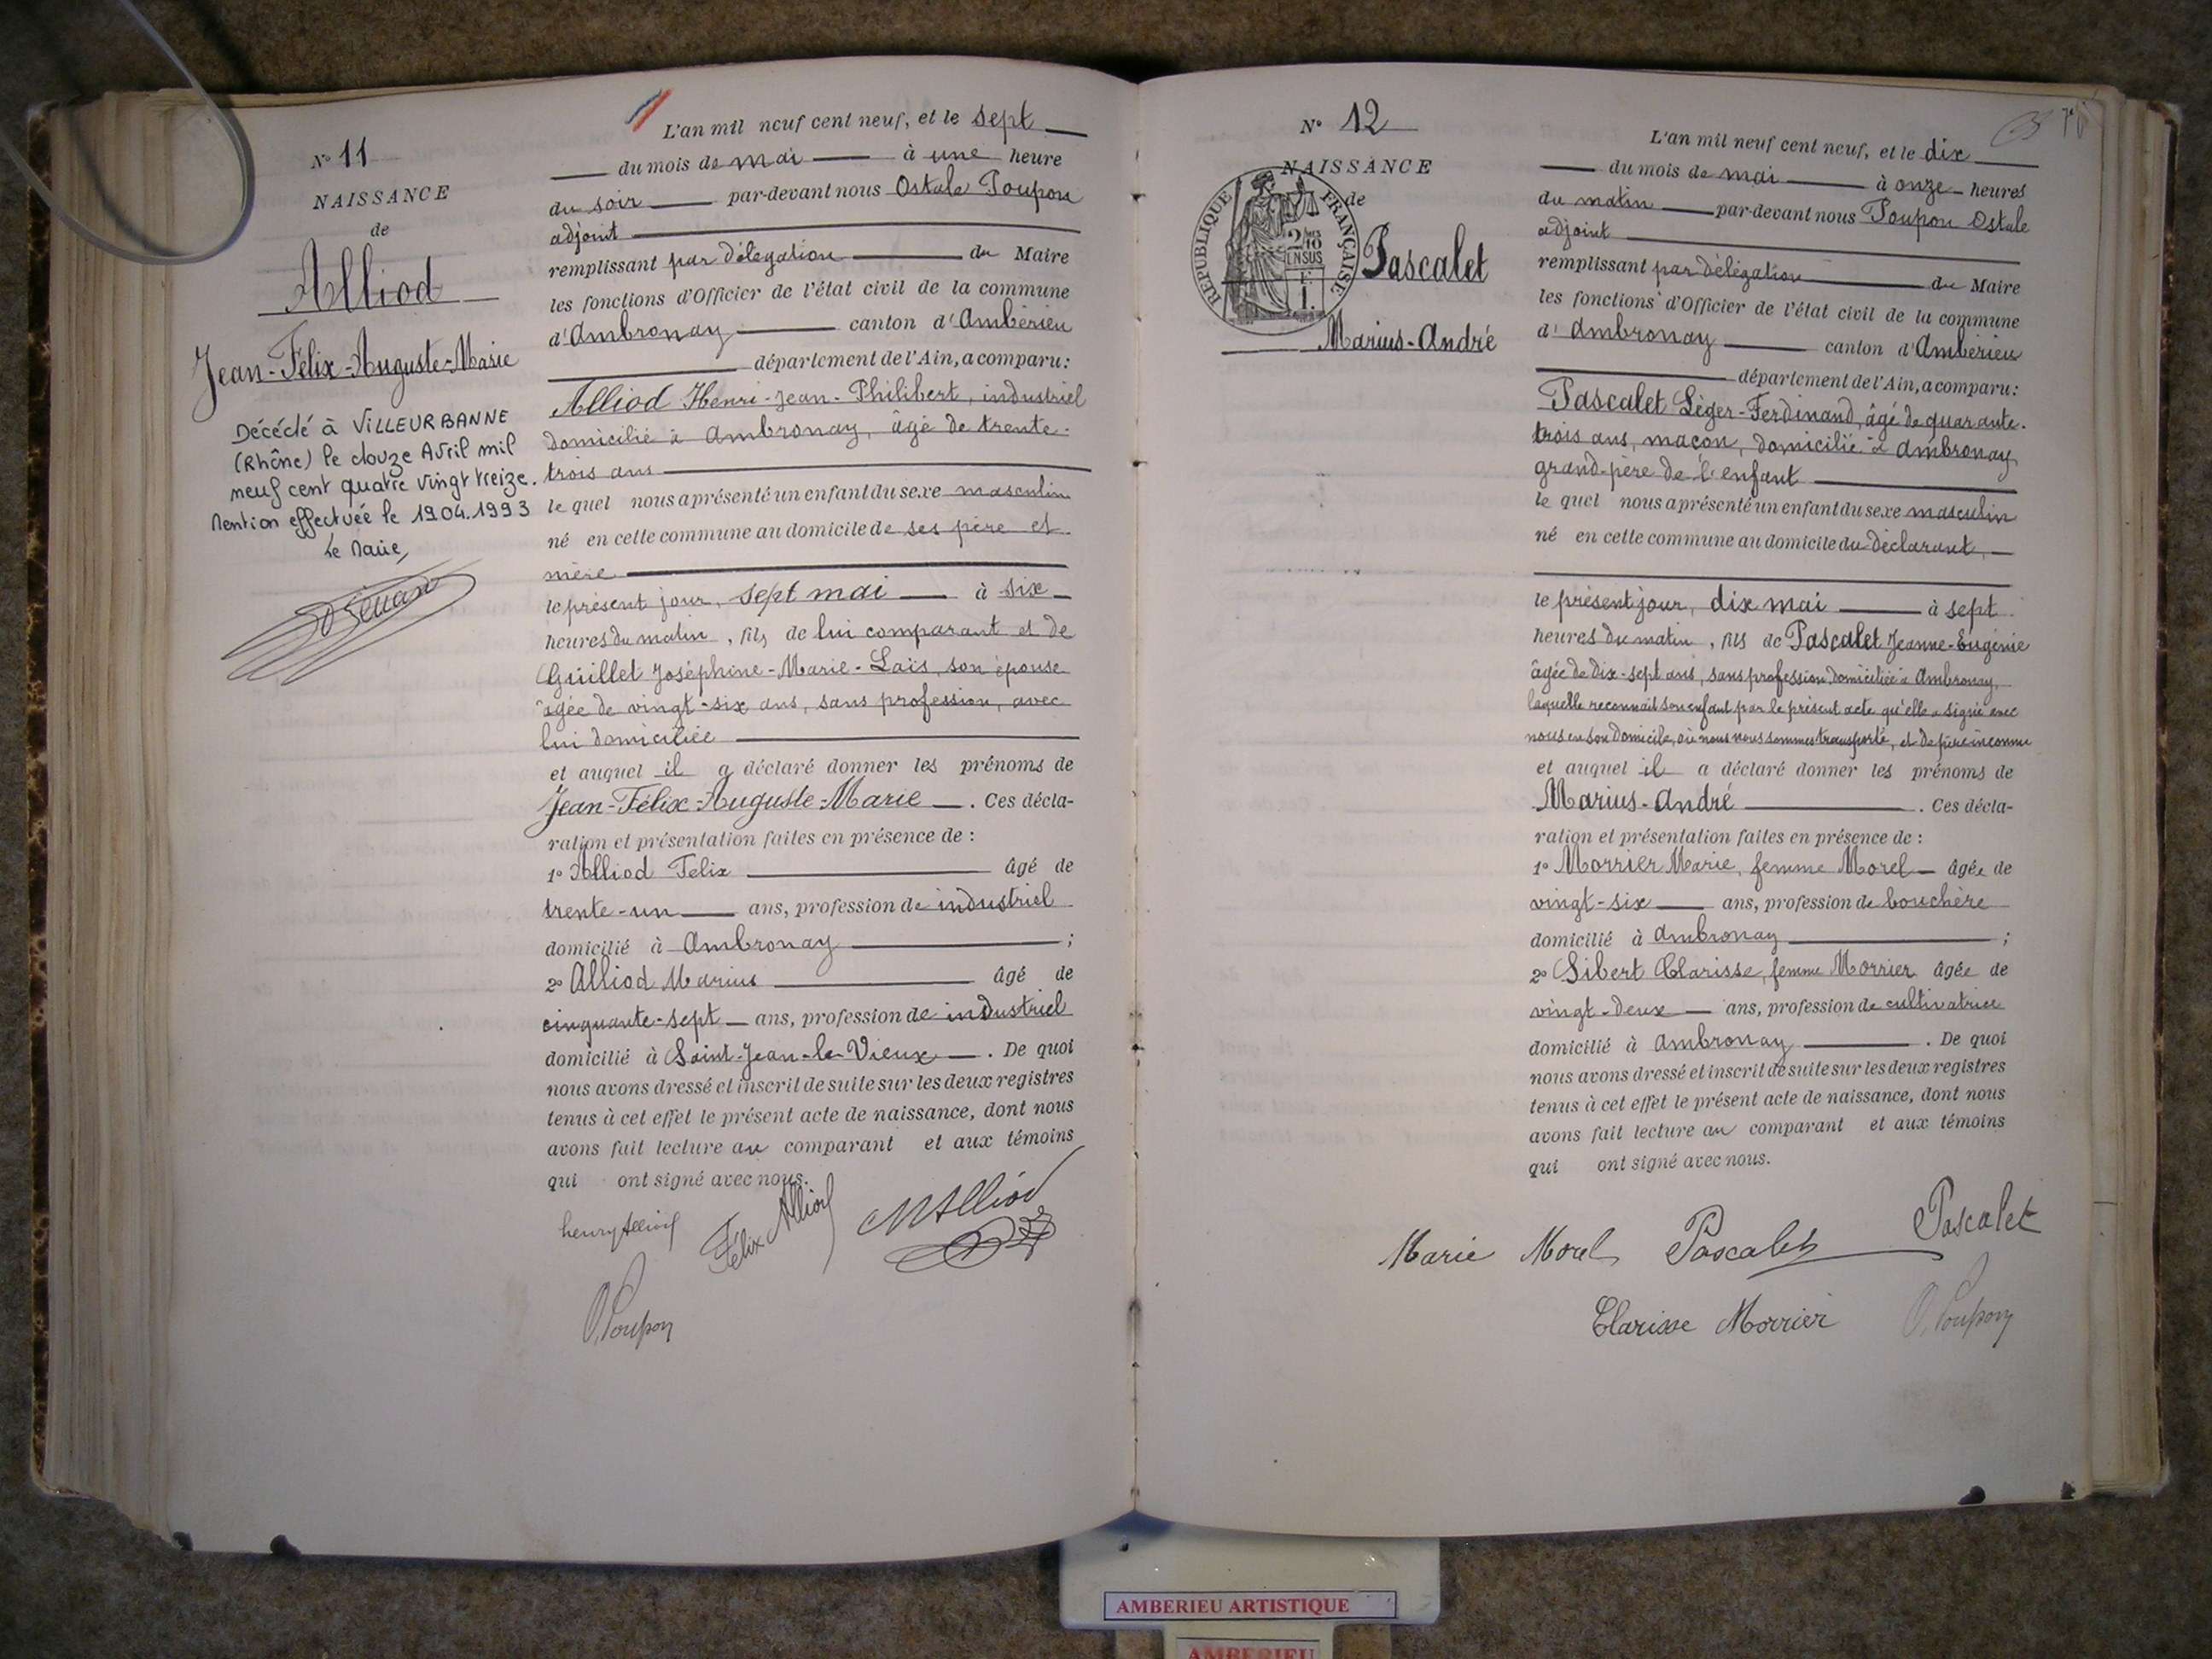 N° 11
NAISSANCE
de
Alliod
Jean-Félix-Auguste-Marie
Décédé à VILLEURBANNE
(Rhône) le douze Avril mil
neuf cent quatre vingt treize.
Mention effectuée le 19.04.1993
Le Maire,
L'an mil neuf cent neuf, et le sept
du mois de mai à une heure
du soir par-devant nous Ostale Poupon
adjoint
remplissant par délégation du Maire
les fonctions d'Officier de l'état civil de la commune
d'Ambronay canton d'Ambérieu
département de l'Ain, a comparu:
Alliod Henri-Jean-Philibert, industriel
domicilié à Ambronay, âgé de trente-
trois ans
le quel nous a présenté un enfant du sexe masculin
né en cette commune au domicile de ses père et
mère
le présent jour, sept mai à six
heures du matin, fils de lui comparant et de
Guillet Joséphine-Marie-Laïs, son épouse
âgée de vingt-six ans, sans profession, avec
lui domiciliée
et auquel il a déclaré donner les prénoms de
Jean-Félix-Auguste-Marie. Ces décla-
ration et présentation faites en présence de :
1° Alliod Félix âgé de
trente-un ans, profession de industriel
domicilié à Ambronay ;
2° Alliod Marius âgé de
cinquante-sept ans, profession de industriel
domicilié à Saint-Jean-le-Vieux. De quoi
nous avons dressé et inscrit de suite sur les deux registres
tenus à cet effet le présent acte de naissance, dont nous
avons fait lecture au comparant et aux témoins
qui ont signé avec nous.
henry Alliod Félix Alliod M Alliod
O. Poupon
N° 12
NAISSANCE
de
RÉPUBLIQUE FRANÇAISE
2/10
EN SUS
Pascalet
Marius-André
L'an mil neuf cent neuf, et le dix
du mois de mai à onze heures
du matin par-devant nous Poupon Ostale
adjoint
remplissant par délégation du Maire
les fonctions d'Officier de l'état civil de la commune
d'Ambronay canton d'Ambérieu
département de l'Ain, a comparu:
Pascalet Léger-Ferdinand, âgé de quarante-
trois ans, maçon, domicilié à Ambronay
grand-père de l'enfant
le quel nous a présenté un enfant du sexe masculin
né en cette commune au domicile du déclarant,
le présent jour, dix mai à sept
heures du matin, fils de Pascalet Jeanne-Eugénie
âgée de dix-sept ans, sans profession, domiciliée à Ambronay,
laquelle reconnait son enfant par le présent acte qu'elle a signé avec
nous en son domicile, où nous nous sommes transporté, et de père inconnu
et auquel il a déclaré donner les prénoms de
Marius-André. Ces décla-
ration et présentation faites en présence de :
1° Morrier Marie, femme Morel âgée de
vingt-six ans, profession de bouchère
domicilié à Ambronay ;
2° Sibert Clarisse, femme Morrier âgée de
vingt-deux ans, profession de cultivatrice
domicilié à Ambronay. De quoi
nous avons dressé et inscrit de suite sur les deux registres
tenus à cet effet le présent acte de naissance, dont nous
avons fait lecture au comparant et aux témoins
qui ont signé avec nous.
Marie Morel Pascalet Pascalet
Clarisse Morrier O. Poupon
AMBERIEU ARTISTIQUE
AMBERIEU